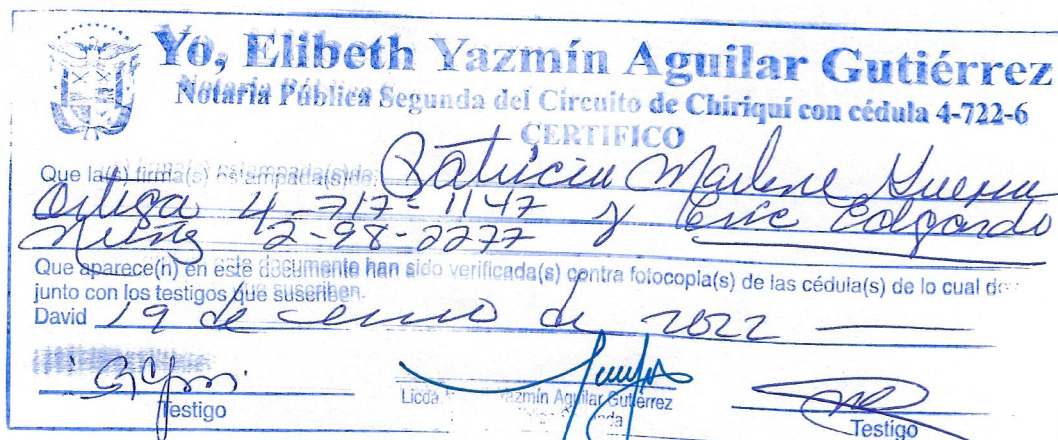 Yo, Elibeth Yazmín Aguilar Gutiérrez
Notaria Pública Segunda del Circuito de Chiriquí con cédula 4-722-6
CERTIFICO
Que la(s) firma(s) estampada(s) de: Patricia Marlene Guerra
Ortega 4-717-1147 y Eric Edgardo
Nuñez 2-98-2277
Que aparece(n) en este documento han sido verificada(s) contra fotocopia(s) de las cédula(s) de lo cual do
junto con los testigos que suscriben.
David 19 de enero de 2022
Testigo
Licda. Yazmín Aguilar Gutiérrez
Testigo